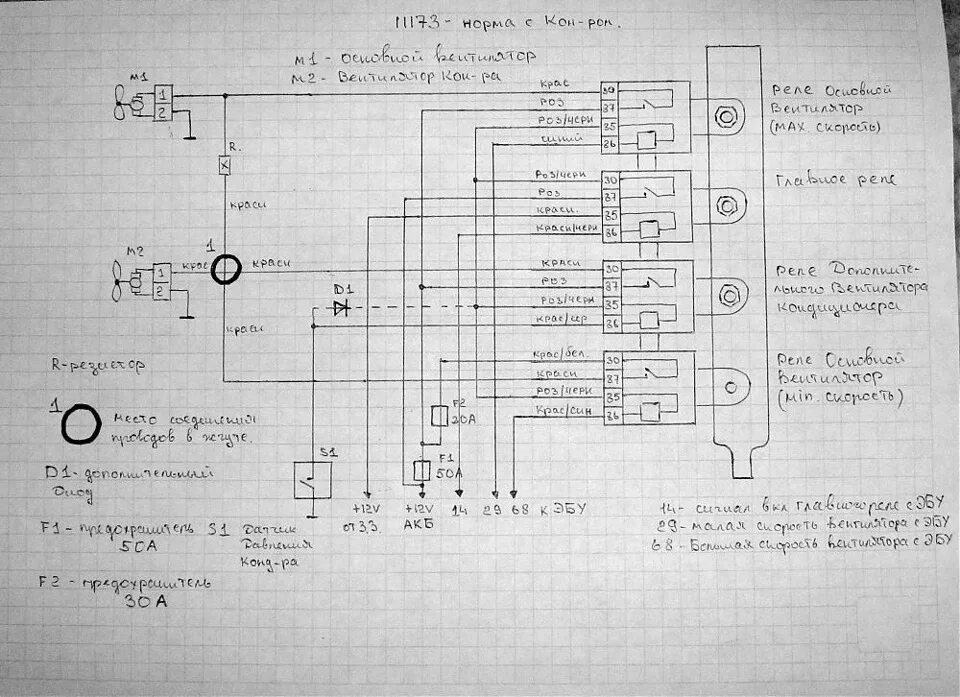 11173 - норма с Кон-ром.
М1 - основной вентилятор
М2 - Вентилятор Кон-ра
М1
1
2
R.
красн
М2
1
2
крас
1
красн
красн
D1
крас
роз
роз/черн
синий
роз/черн
роз
красн.
красн/черн
красн
роз
роз/черн
крас/сер
крас/бел.
красн
роз/черн
крас/син
30
87
85
86
30
87
85
86
30
87
85
86
30
87
85
86
Реле Основной
Вентилятор
(MAX. скорость)
Главное реле
Реле Дополните-
льного Вентилятора
Кондиционера
Реле Основной
Вентилятор
(Min. скорость)
F2
20А
F1
50А
S1
+12V
от З.З.
+12V
АКБ
14
29
68
К ЭБУ
R-резистор
1
Место соединения
проводов в жгуте.
D1- дополнительный
Диод
F1 - предохранитель
50А
S1 Датчик
Давления
Конд-ра
F2 - предохранитель
30А
14- сигнал вкл главного реле с ЭБУ
29- малая скорость вентилятора с ЭБУ
68 - Большая скорость вентилятора с ЭБУ